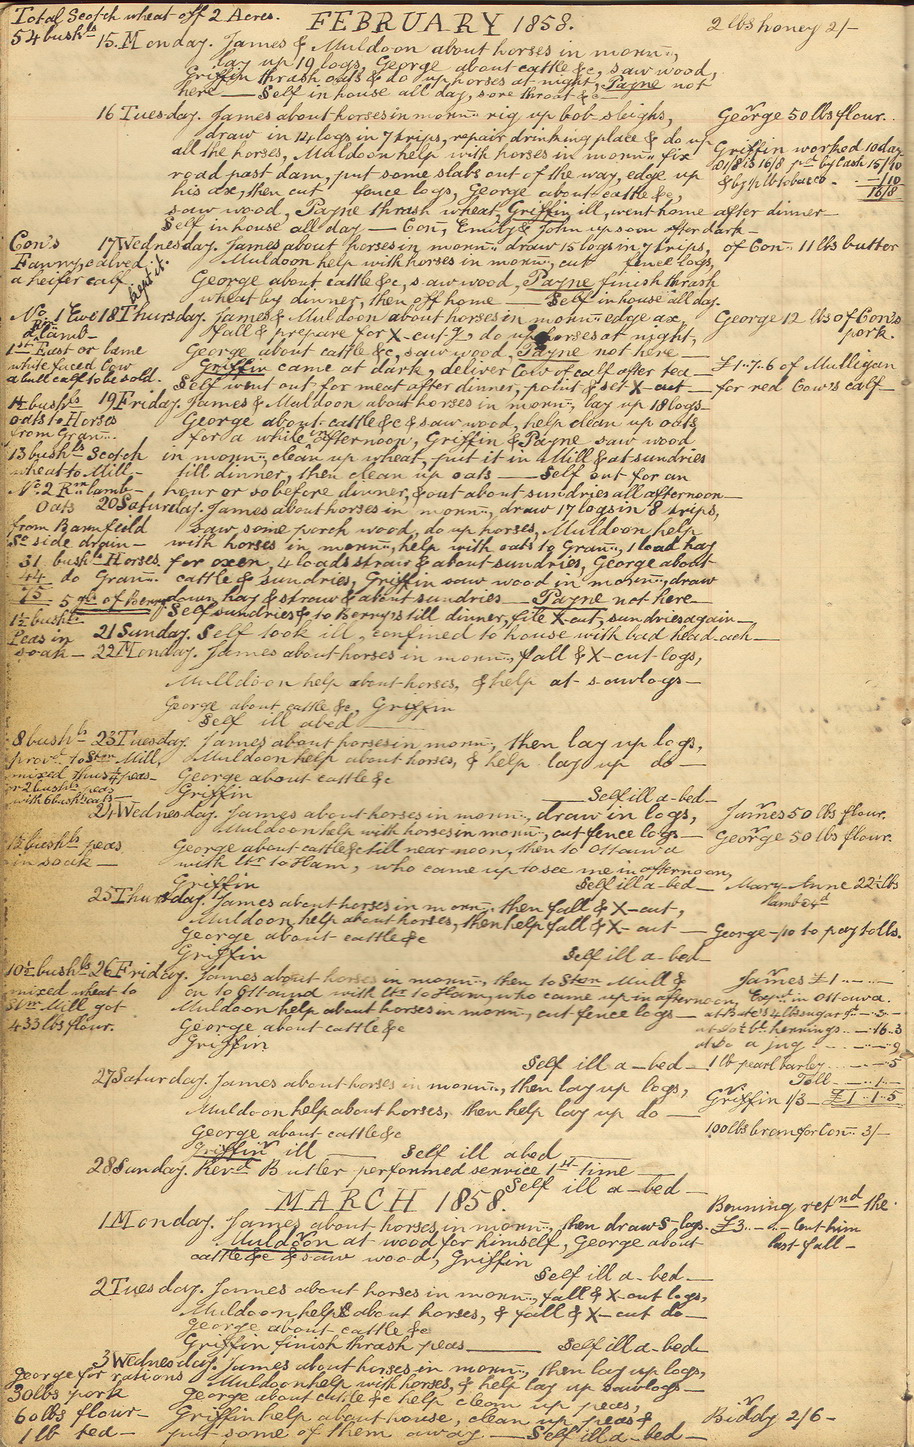 Total Scotch wheat off 2 Acres.
54 bushls
FEBRUARY 1858.
2 lbs honey 2/-
15. Monday. James & Muldoon about horses in mornn.,
lay up 19 logs, George about cattle &c, saw wood,
Griffin thrash oats & do up horses at night, Payne not
here — Self in house all day, sore throat &c
16 Tuesday. James about horses in mornn. rig up bob sleighs,
George 50 lbs flour.
draw in 12 logs in 7 trips, repair drinking place & do up
all the horses, Muldoon help with horses in mornn. fix
Griffin worked 10 day
road past dam, put some slabs out of the way, edge up
@ 1/8 is 16/8 pd by Cash 15/10
his ax, then cut fence logs, George about cattle &c,
& by ½ lb tobacco - -/10
16/8
saw wood, Payne thrash wheat, Griffin ill, went home after dinner —
Self in house all day — Con, Emily & John up soon after dark —
Con's
Fanny, calved
a heifer calf
17 Wednesday. James about horses in mornn. draw 15 logs in 7 trips,
of Con. 11 lbs butter
Muldoon help with horses in mornn., cut fence logs,
light it.
George about cattle &c, saw wood, Payne finish thrash
wheat by dinner, then off home — Self in house all day.
No. 1 Ewe
2 lamb —
18 Thursday. James & Muldoon about horses in mornn. edge ax,
George 12 lbs of Con's
pork.
fall & prepare for X-cut-g, do up horses at night,
1st East or lame
white faced Cow
a bull calf to be sold.
George about cattle &c, saw wood, Payne not here —
Griffin came at dark, deliver Cow of calf after tea —
£1.7.6 of Mulligan
Self went out for meat after dinner, point & set X-cut —
for red Cow's calf —
14 bushls
oats to Horses
from Grann.
19 Friday. James & Muldoon about horses in mornn., lay up 18 logs —
George about cattle &c & saw wood, help clean up oats
for a while in afternoon, Griffin & Payne saw wood
13 bushls Scotch
wheat to Mill —
in mornn., clean up wheat, put it in Mill & at sundries
till dinner, then clean up oats — Self out for an
No. 2 Rm lamb —
hour or so before dinner, & out about sundries all afternoon —
Oats
from Barnfeild
So side drain —
20 Saturday. James about horses in mornn., draw 17 logs in 8 trips,
saw some porch wood, do up horses, Muldoon help
with horses in mornn., help with oats to Grann., 1 load hay
31 bushls Horses
for oxen, 4 loads straw & about sundries, George about
44 do Grann.
cattle & sundries, Griffin saw wood in mornn., draw
75 — 5 qts of Berry
down hay & straw & about sundries — Payne not here —
1½ bushls
Peas in
soak —
Self sundries & to Berry's till dinner, file X-cut, sundries again —
21 Sunday. Self took ill, confined to house with bad head-ach —
22 Monday. James about horses in mornn., fall & X-cut logs,
Mulldoon help about horses, & help at sawlogs —
George about cattle &c, Griffin
Self ill abed
8 bushls
provr. to Stor Mill,
mixed thus ¼ peas —
or 2 bushls peas
with 6 bushls oats —
23 Tuesday. James about horses in mornn., then lay up logs,
Muldoon help about horses, & help lay up do —
George about cattle &c
Griffin — Self ill a-bed —
24 Wednesday. James about horses in mornn., draw in logs,
James 50 lbs flour.
Muldoon help with horses in mornn., cut fence logs —
George 50 lbs flour.
1½ bushls peas
in soak —
George about cattle &c till near noon, then to Ottawa
with ltr to Ham, who came up to see me in afternoon,
Griffin Self ill a-bed —
Mary-Anne 22½ lbs
lamb @ 4d
25 Thursday. James about horses in mornn. then fall & X-cut,
Muldoon, help about horses, then help fall & X-cut —
George about cattle &c
George -/10 to pay tolls.
Griffin Self ill a-bed —
10½ bushls
mixed wheat to
Stor Mill got
433 lbs flour.
26 Friday. James about horses in mornn., then to Ston Mill &
James £1
on to Ottawa with ltr to Ham, who came up in afternoon,
Expd. in Ottawa.
Muldoon help about horses in mornn, cut fence logs —
at Bate's 4 lbs sugar
George about cattle &c
herrings — 16.3
Griffin
at do a jug — 9
Self ill a-bed —
1 lb pearl barley — 5
Toll — 1
27 Saturday. James about horses in mornn., then lay up logs,
Griffin 1/3 — £1..1..5
Muldoon help about horses, then help lay up do —
100 lbs bran for Con. 3/-
George about cattle &c
Griffin ill — Self ill abed
28 Sunday. Revd. Butler performed service 1st time —
Self ill a-bed —
MARCH 1858.
Benning retnd the
£3 — lent him
last fall —
1 Monday. James about horses in mornn., then draw S-logs.
Muldoon at wood for himself, George about
cattle &c & saw wood, Griffin
Self ill a-bed —
2 Tuesday. James about horses in mornn., fall & X-cut logs,
Muldoon help about horses, & fall & X-cut do —
George about cattle &c
Griffin finish thrash peas — Self ill a-bed
George for rations
30 lbs pork
60 lbs flour —
1 lb tea —
3 Wednesday. James about horses in mornn., then lay up logs,
Muldoon help with horses, & help lay up sawlogs —
George about cattle &c help clean up peas,
Griffin help about house, clean up peas &
Biddy 2/6 —
put some of them away — Self ill a-bed —